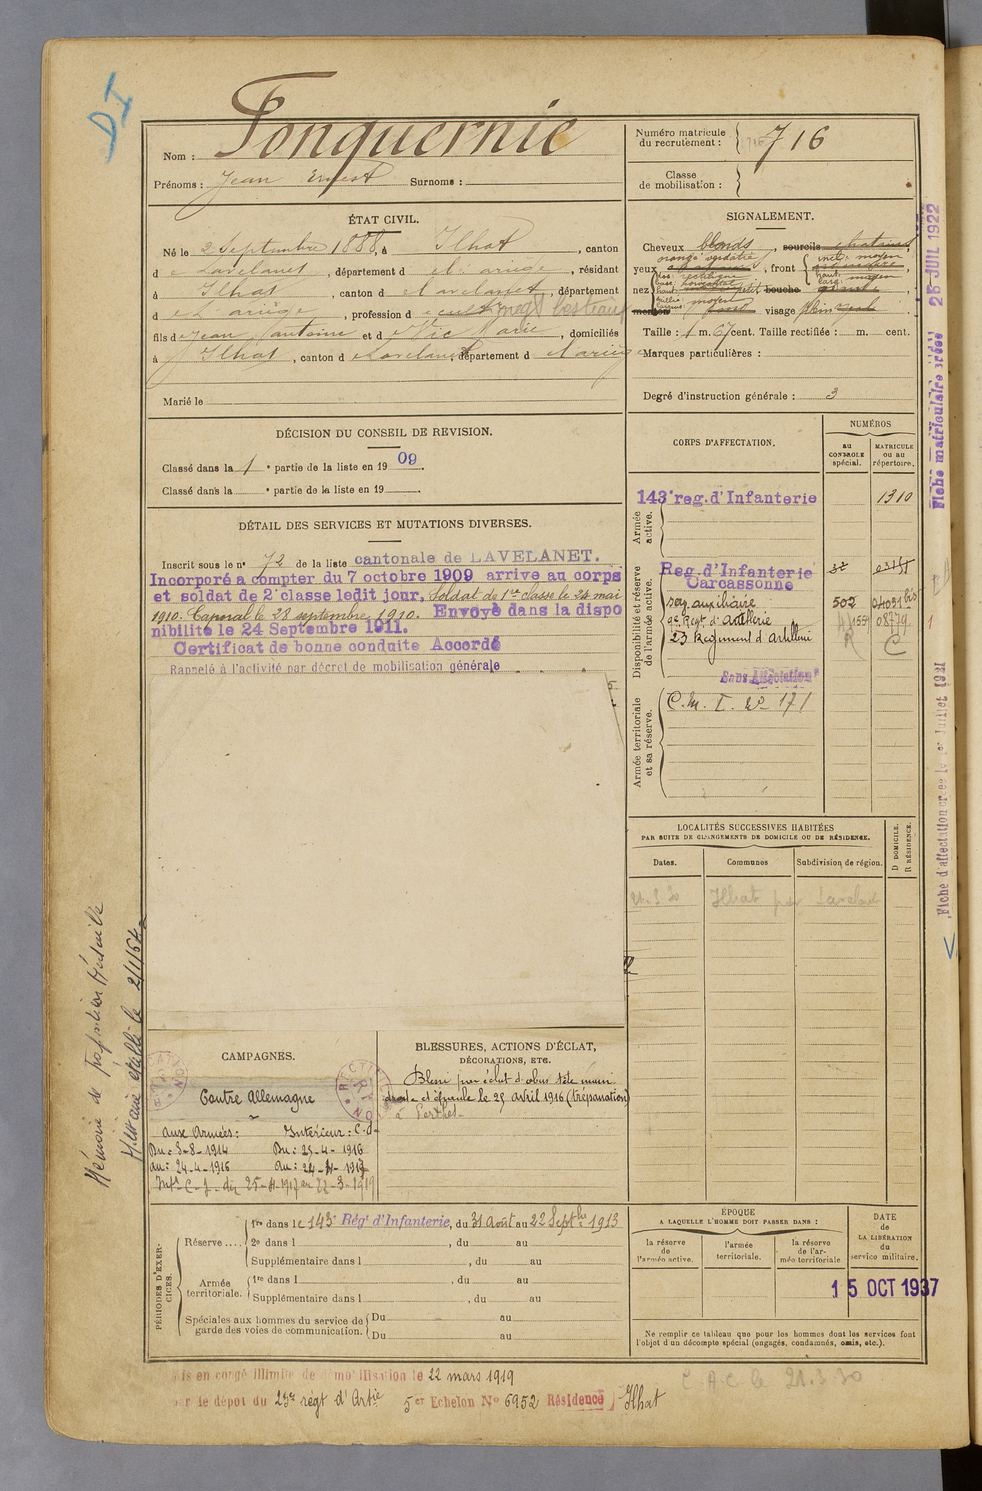 DI
Nom : Fonquernie
Prénoms : Jean Ernest Surnoms :
Numéro matricule du recrutement : 716
Classe de mobilisation :
ÉTAT CIVIL.
Né le 2 Septembre 1888, à Ilhat, canton
de Lavelanet, département de l'ariège, résidant
à Ilhat, canton de Lavelanet, département
de L'ariège, profession de cult negt bestiaux
fils de Jean Antoine et de Vic Marie, domiciliés
à Ilhat, canton de Lavelanet, département de l'ariège
Marié le
SIGNALEMENT.
Cheveux blonds, sourcils chatains
yeux orangé verdâtre, front incl: moyen
haut: moyen
larg:
nez dos rectiligne
base horizontal
haut: petit bouche grande
menton moyen visage plein
Taille : 1 m. 67 cent. Taille rectifiée : m. cent.
Marques particulières :
Degré d'instruction générale : 3
DÉCISION DU CONSEIL DE REVISION.
Classé dans la 1e partie de la liste en 1909.
Classé dans la e partie de la liste en 19
DÉTAIL DES SERVICES ET MUTATIONS DIVERSES.
Inscrit sous le n° 72 de la liste cantonale de LAVELANET.
Incorporé a compter du 7 octobre 1909 arrive au corps
et soldat de 2e classe ledit jour, Soldat de 1re classe le 24 mai
1910. Caporal le 28 septembre 1910. Envoyè dans la dispo
nibilitè le 24 Septembre 1911.
Certificat de bonne conduite Accordé
Rappelé à l'activité par décret de mobilisation générale
CORPS D'AFFECTATION.
NUMÉROS
au CONTROLE spécial.
MATRICULE ou au répertoire.
Armée active.
143e reg. d'Infanterie 1310
Disponibilité et réserve de l'armée active.
Reg. d'Infanterie
Carcassonne
serv. auxiliaire 502 04031 bis
9e Régt d'artillerie 1554 08779
23 Régiment d'artillerie R C
Sans Affectation
Armée territoriale et sa réserve.
C. M. I. No 171
LOCALITÉS SUCCESSIVES HABITÉES
PAR SUITE DE CHANGEMENTS DE DOMICILE OU DE RÉSIDENCE.
Dates. Communes Subdivision de région. D DOMICILE. R RÉSIDENCE.
21.3 30 Ilhat par Lavelanet
CAMPAGNES.
Contre Allemagne
Aux Armées: Intérieur: C.d.
Du: 3-8-1914 Du: 25-4-1916
au: 24-4-1916 Au: 24-4-1917
Intr C-d- du 25-4-1917 au 22-3-1919
BLESSURES, ACTIONS D'ÉCLAT,
DÉCORATIONS, ETC.
Blessé par éclat d'obus tête main
droite et épaule le 25 avril 1916 (trépanation)
à Perthes-
PÉRIODES D'EXERCICES.
Réserve .... 1re dans le 143e Rég' d'Infanterie, du 31 Août au 22 Septbre 1913
2e dans l , du au
Supplémentaire dans l , du au
Armée territoriale. 1re dans l , du au
Supplémentaire dans l , du au
Spéciales aux hommes du service de garde des voies de communication. Du au
Du au
ÉPOQUE
A LAQUELLE L'HOMME DOIT PASSER DANS :
la réserve de l'armée active.
l'armée territoriale.
la réserve de l'armée territoriale
DATE DE LA LIBÉRATION du service militaire.
15 OCT 1937
Ne remplir ce tableau que pour les hommes dont les services font
l'objet d'un décompte spécial (engagés, condamnés, omis, etc.).
Mis en congé illimité de démobilisation le 22 mars 1919
par le dépot du 23me régt d'Artie 5er Echelon No 6952 Résidence Ilhat
C.A.C. le 21.3.30
Mémoire de proposition Médaille
Militaire établi le 2/1/54
Fiche matriculaire créée 25 JUIL 1922
Fiche d'affectation créée le 1er Juillet 1921